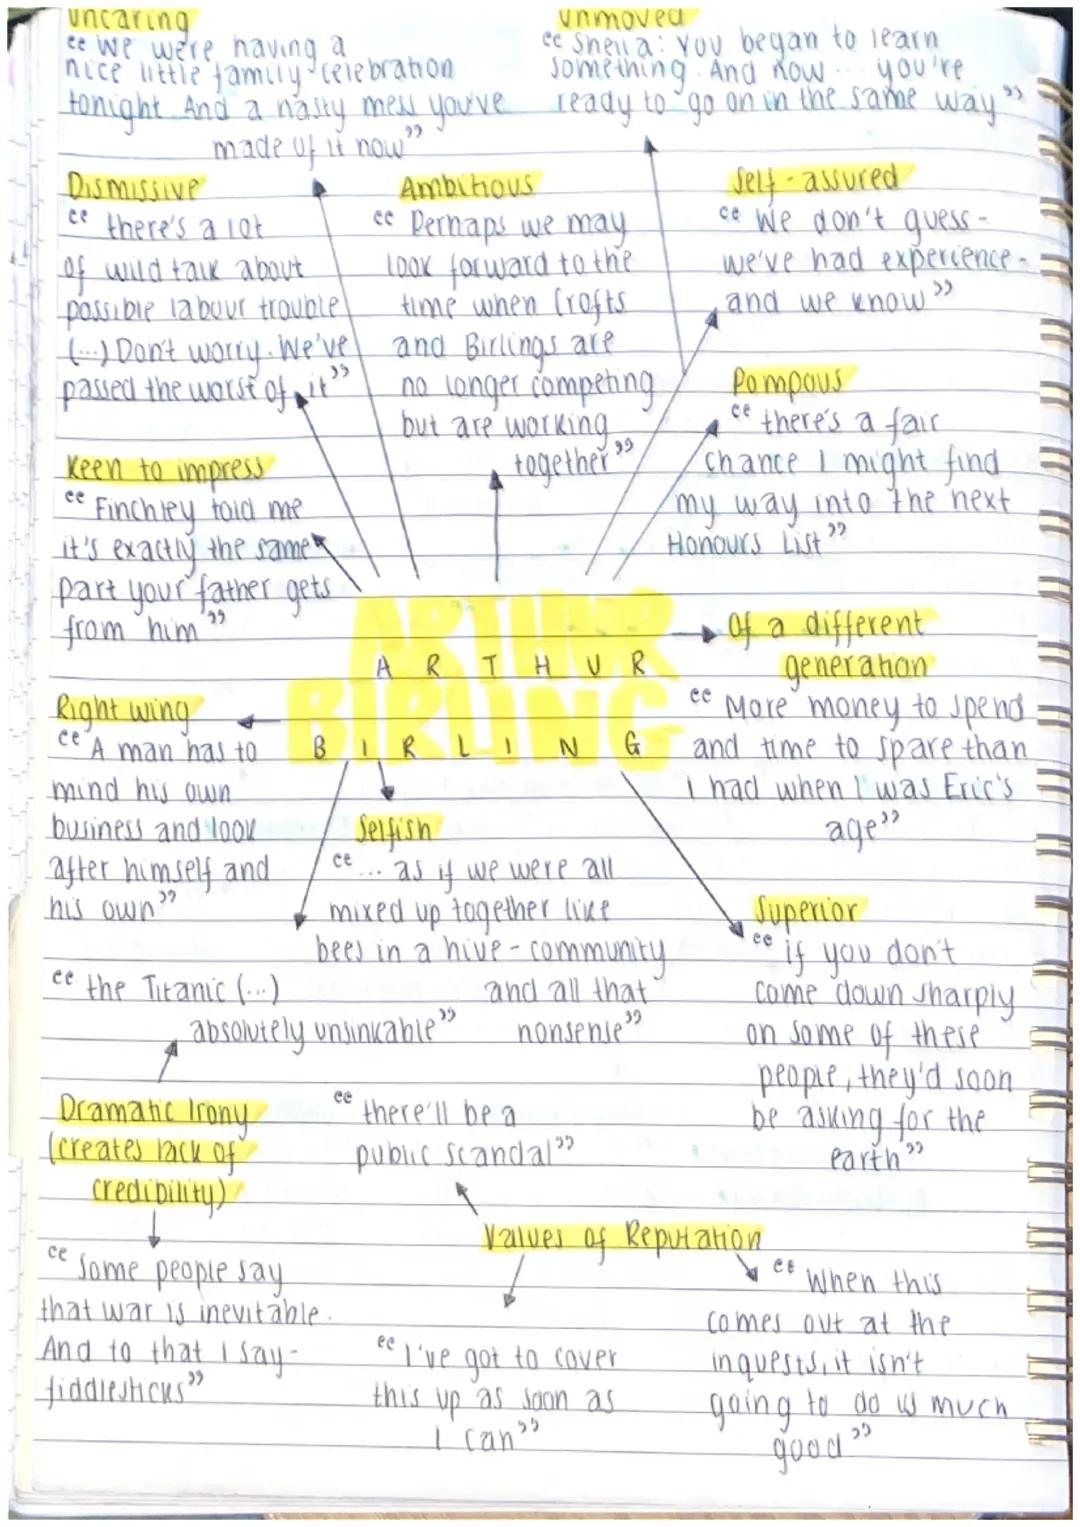 uncaring
"We were having a
nice little family celebration
tonight. And a nasty mess you've
made of it now"
unmoved
"Sheila: You began to learn
something. And now ... you're
ready to go on in the same way"
Dismissive
"there's a lot
of wild talk about
possible labour trouble
(...) Don't worry. We've
passed the worst of it"
Ambitious
"Perhaps we may
look forward to the
time when Crofts
and Birlings are
no longer competing
but are working
together"
Self-assured
"We don't guess -
we've had experience -
and we know"
Pompous
"there's a fair
chance I might find
my way into the next
Honours List"
Keen to impress
"Finchley told me
it's exactly the same
part your father gets
from him"
ARTHUR
BIRLING
A R T H U R
B I R L I N G
Of a different
generation
"More money to spend
and time to spare than
I had when I was Eric's
age"
Right wing
"A man has to
mind his own
business and look
after himself and
his own"
Selfish
"... as if we were all
mixed up together like
bees in a hive - community
and all that
nonsense"
Superior
"if you don't
come down sharply
on some of these
people, they'd soon
be asking for the
earth"
"the Titanic (...)
absolutely unsinkable"
Dramatic Irony
(creates lack of
credibility)
"Some people say
that war is inevitable.
And to that I say -
fiddlesticks"
"there'll be a
public scandal"
Values of Reputation
"I've got to cover
this up as soon as
I can"
"When this
comes out at the
inquests, it isn't
going to do us much
good"